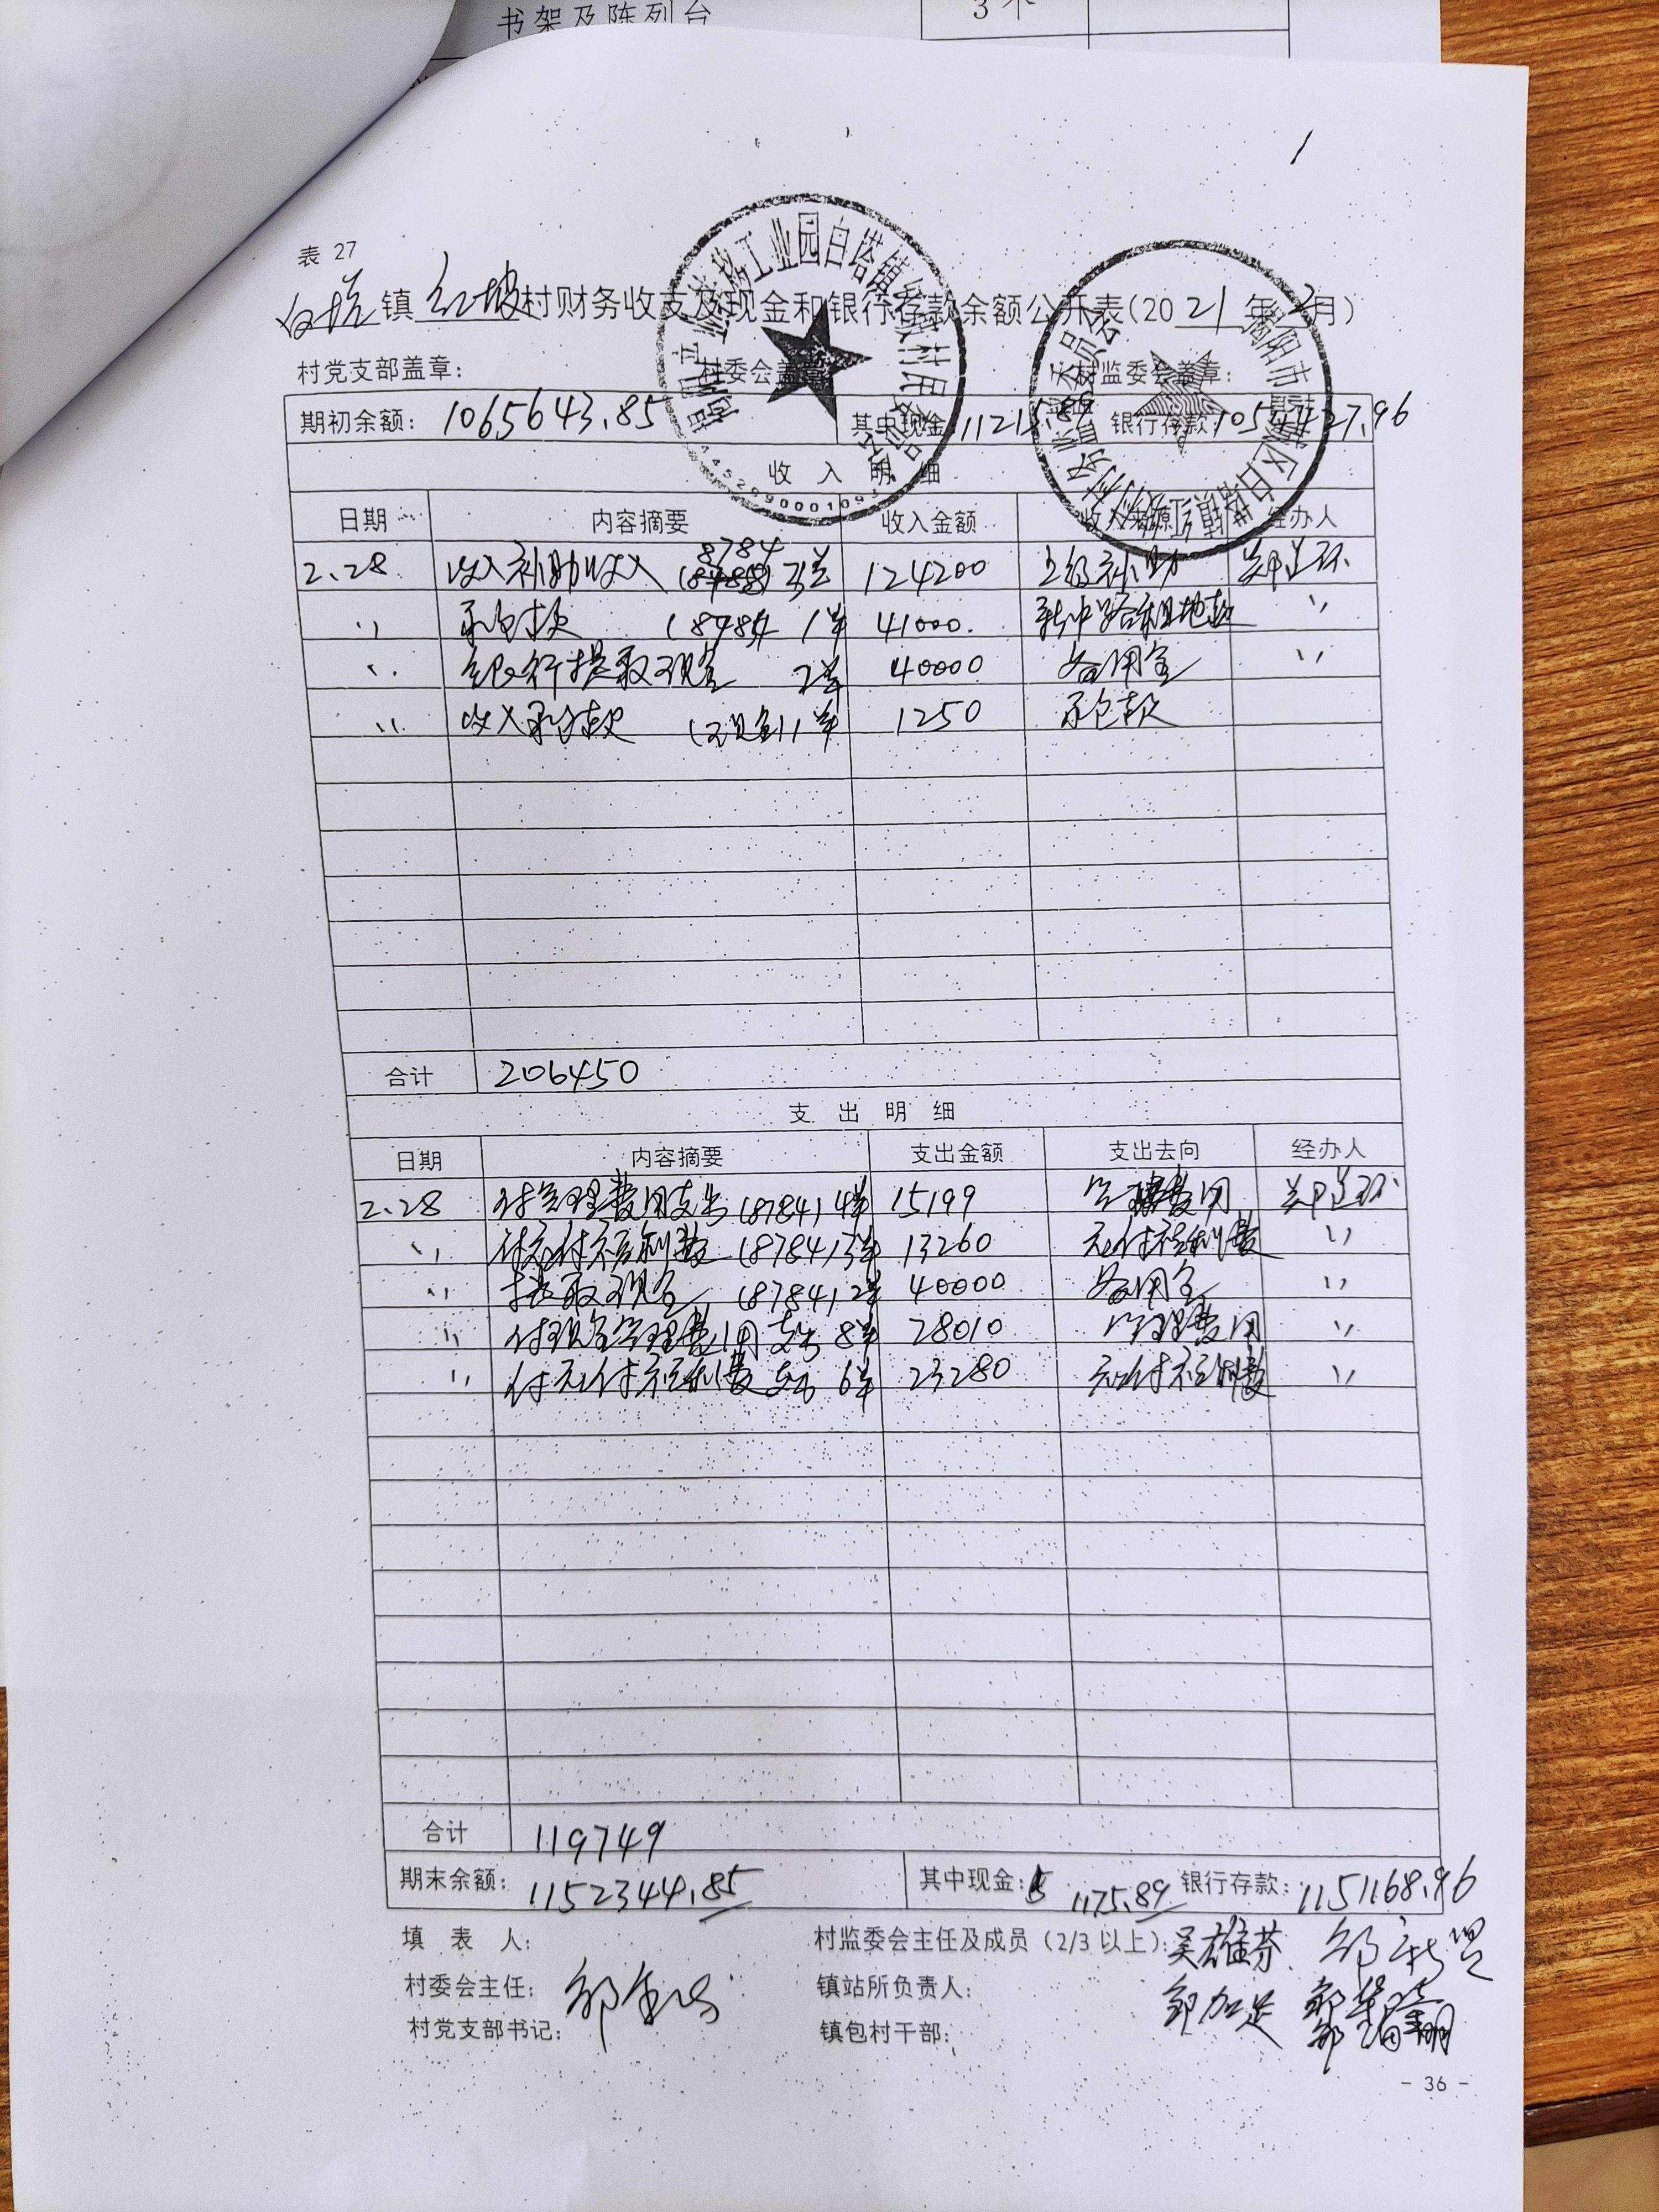 书架及陈列台 3个
表 27
白塔镇红坡村财务收支及现金和银行存款余额公开表(2021年2月)
村党支部盖章: 村委会盖章: 村监委会盖章:
期初余额: 1065643.85 其中现金: 11215.89 银行存款: 1054427.96
收入明细
日期 内容摘要 收入金额 收入来源 经办人
8784
2.28 收入补助收入 3单 124200 上级补助
〃 承包款 (8784) 1单 41000. 租地款 〃
〃 银行提取现金 2单 40000 备用金 〃
〃 收入承包款 (现金) 1单 1250 承包款
合计 206450
支出明细
日期 内容摘要 支出金额 支出去向 经办人
2.28 付管理费用支出 (8784) 4单 15199 管理费用
〃 付应付福利费 (8784) 3单 13260 应付福利费 〃
〃 提取现金 (8784) 2单 40000 备用金 〃
〃 付现金管理费用支出 8单 28010 管理费用 〃
〃 付应付福利费支出 6单 23280 应付福利费 〃
合计 119749
期末余额: 1152344.85 其中现金: 1175.89 银行存款: 1151168.96
填表人: 村监委会主任及成员(2/3以上): 吴雄芬
村委会主任: 镇站所负责人:
村党支部书记: 镇包村干部:
- 36 -